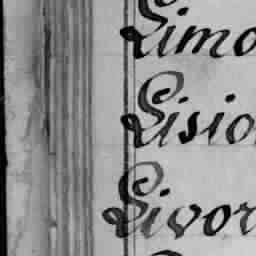 Limo
Lisio
Livor